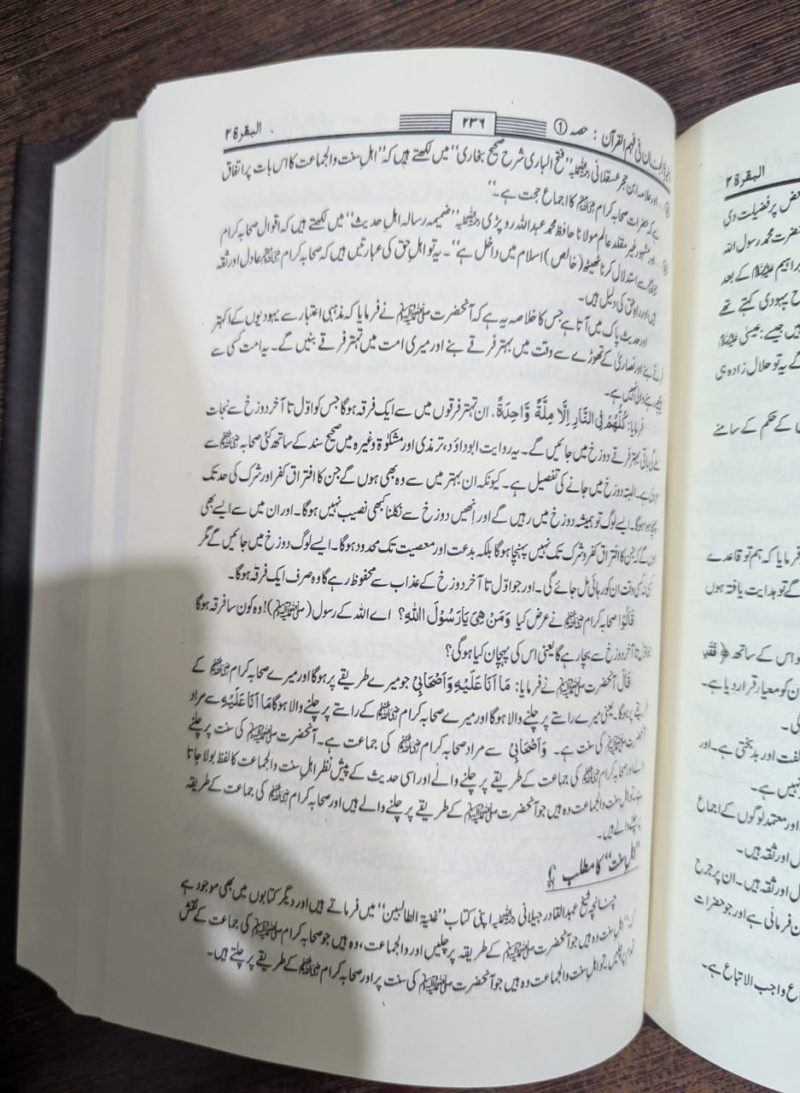 فی فہم القرآن : حصہ ① ۲۳۶ البقرة ۲
اور علامہ ابن حجر عسقلانی رحمہ اللہ ”فتح الباری شرح صحیح بخاری“ میں لکھتے ہیں کہ ”اہل سنت والجماعت کا اس بات پر اتفاق
ہے کہ حضرات صحابہ کرام رضی اللہ عنہم کا اجماع حجت ہے۔“
اور مشہور غیر مقلد عالم مولانا حافظ محمد عبداللہ روپڑی رحمہ اللہ ”ضمیمہ رسالہ اہل حدیث“ میں لکھتے ہیں کہ اقوال صحابہ کرام
سے استدلال کرنا ٹھیٹھ (خالص) اسلام میں داخل ہے“۔ یہ تو اہل حق کی عبارتیں ہیں کہ صحابہ کرام رضی اللہ عنہم عادل اور ثقہ
ہیں اور راہ حق کی دلیل ہیں۔
اور حدیث پاک میں آتا ہے جس کا خلاصہ یہ ہے کہ آنحضرت ﷺ نے فرمایا کہ مذہبی اعتبار سے یہودیوں کے اکہتر
فرقے بنے اور نصاریٰ کے تھوڑے سے وقت میں بہتر فرقے بنے اور میری امت میں تہتر فرقے بنیں گے۔ یہ امت کسی سے
پیچھے رہنے والی نہیں ہے۔
فرمایا: كُلُّهُمْ فِي النَّارِ اِلَّا مِلَّةً وَّاحِدَةً. ان تہتر فرقوں میں سے ایک فرقہ ہوگا جس کو اوّل تا آخر دوزخ سے نجات
ملے گی باقی بہتر فرقے دوزخ میں جائیں گے۔ یہ روایت ابوداؤد، ترمذی اور مشکوٰۃ وغیرہ میں صحیح سند کے ساتھ کئی صحابہ رضی اللہ عنہم سے
مروی ہے۔ البتہ دوزخ میں جانے کی تفصیل ہے۔ کیونکہ ان بہتر میں سے وہ بھی ہوں گے جن کا افتراق کفر اور شرک کی حد تک
پہنچا ہوگا۔ ایسے لوگ تو ہمیشہ دوزخ میں رہیں گے اور انھیں دوزخ سے نکلنا کبھی نصیب نہیں ہوگا۔ اور ان میں سے ایسے بھی
ہوں گے کہ جن کا افتراق کفر و شرک تک نہیں پہنچا ہوگا بلکہ بدعت اور معصیت تک محدود ہوگا۔ ایسے لوگ دوزخ میں جائیں گے مگر
کسی نہ کسی وقت ان کو رہائی مل جائے گی۔ اور جو اوّل تا آخر دوزخ کے عذاب سے محفوظ رہے گا وہ صرف ایک فرقہ ہوگا۔
قَالُوْا صحابہ کرام رضی اللہ عنہم نے عرض کیا وَمَنْ هِيَ يَارَسُوْلَ اللهِ؟ اے اللہ کے رسول (ﷺ)! وہ کون سا فرقہ ہوگا
جو اوّل تا آخر دوزخ سے بچا رہے گا یعنی اس کی پہچان کیا ہوگی؟
قَالَ آنحضرت ﷺ نے فرمایا: مَا اَنَا عَلَيْهِ وَاَصْحَابِيْ جو میرے طریقے پر ہوگا اور میرے صحابہ کرام رضی اللہ عنہم کے
طریقے پر ہوگا۔ یعنی میرے راستے پر چلنے والا ہوگا اور میرے صحابہ کرام رضی اللہ عنہم کے راستے پر چلنے والا ہوگا مَا اَنَا عَلَيْهِ سے مراد
آنحضرت ﷺ کی سنت ہے۔ وَاَصْحَابِيْ سے مراد صحابہ کرام رضی اللہ عنہم کی جماعت ہے۔ آنحضرت ﷺ کی سنت پر چلنے
والے اور صحابہ کرام رضی اللہ عنہم کی جماعت کے طریقے پر چلنے والے اور اسی حدیث کے پیش نظر اہل سنت والجماعت کا لفظ بولا جاتا
ہے۔ تو اہل سنت والجماعت وہ ہیں جو آنحضرت ﷺ کے طریقے پر چلنے والے ہیں اور صحابہ کرام رضی اللہ عنہم کی جماعت کے طریقہ
پر چلنے والے ہیں۔
”اہل سنت“ کا مطلب
چنانچہ شیخ عبدالقادر جیلانی رحمہ اللہ اپنی کتاب ”غنیۃ الطالبین“ میں فرماتے ہیں اور دیگر کتابوں میں بھی موجود ہے
کہ ”اہل سنت وہ ہیں جو آنحضرت ﷺ کے طریقہ پر چلیں اور والجماعت، وہ ہیں جو صحابہ کرام رضی اللہ عنہم کی جماعت کے نقش
قدم پر چلیں۔ تو اہل سنت والجماعت وہ ہیں جو آنحضرت ﷺ کی سنت پر اور صحابہ کرام رضی اللہ عنہم کے طریقے پر چلتے ہیں۔
البقرة ۲
بعض پر فضیلت دی
حضرت محمد رسول اللہ
ابراہیم علیہ السلام کے بعد
یہودی کہتے تھے
ہیں جیسے: عیسیٰ علیہ السلام
گے یہ تو حلال زادہ ہی
کے حکم کے سامنے
فرمایا کہ ہم تو قاعدے
گے تو ہدایت یافتہ ہوں
اس کے ساتھ ﴿فَقَدِ
ان کو معیار قرار دیا ہے۔
کی۔
اور بدبختی ہے۔ اور
نہیں ہے۔
اور معتمد لوگوں کے اجماع
اور ثقہ ہیں۔
اور ثقہ ہیں۔ ان پر جرح
فرمائی ہے اور جو حضرات
واجب الاتباع ہے۔